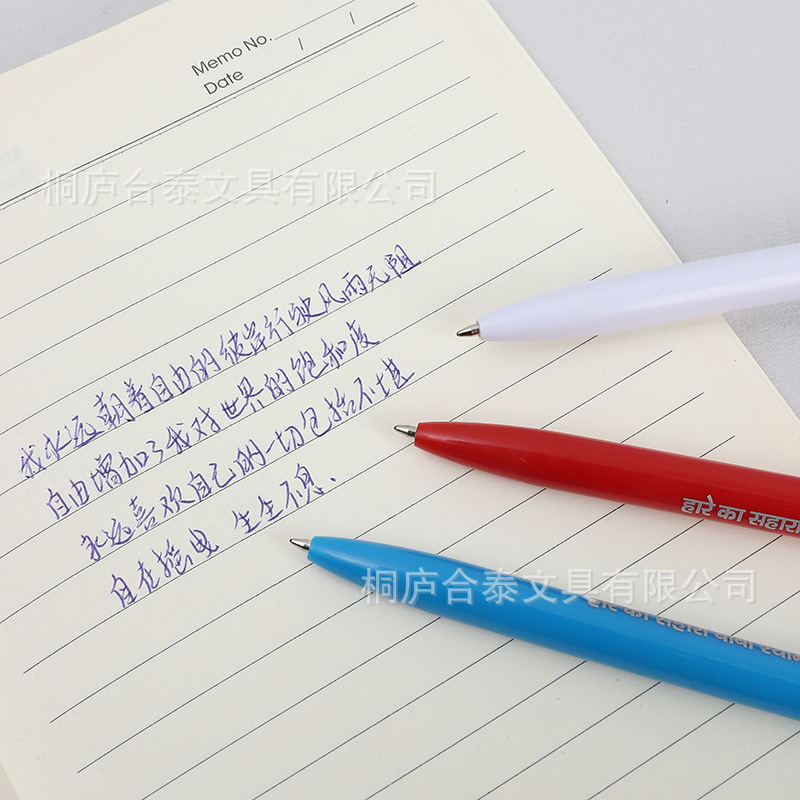 Memo No.
Date / /
桐庐合泰文具有限公司
我永远朝着自由的彼岸行驶风雨无阻
自由增加了我对世界的饱和度
永远喜欢自己的一切包括不堪
自在 生生不息.
हारे का सहारा
桐庐合泰文具有限公司
हारे का सहारा बाबा श्याम